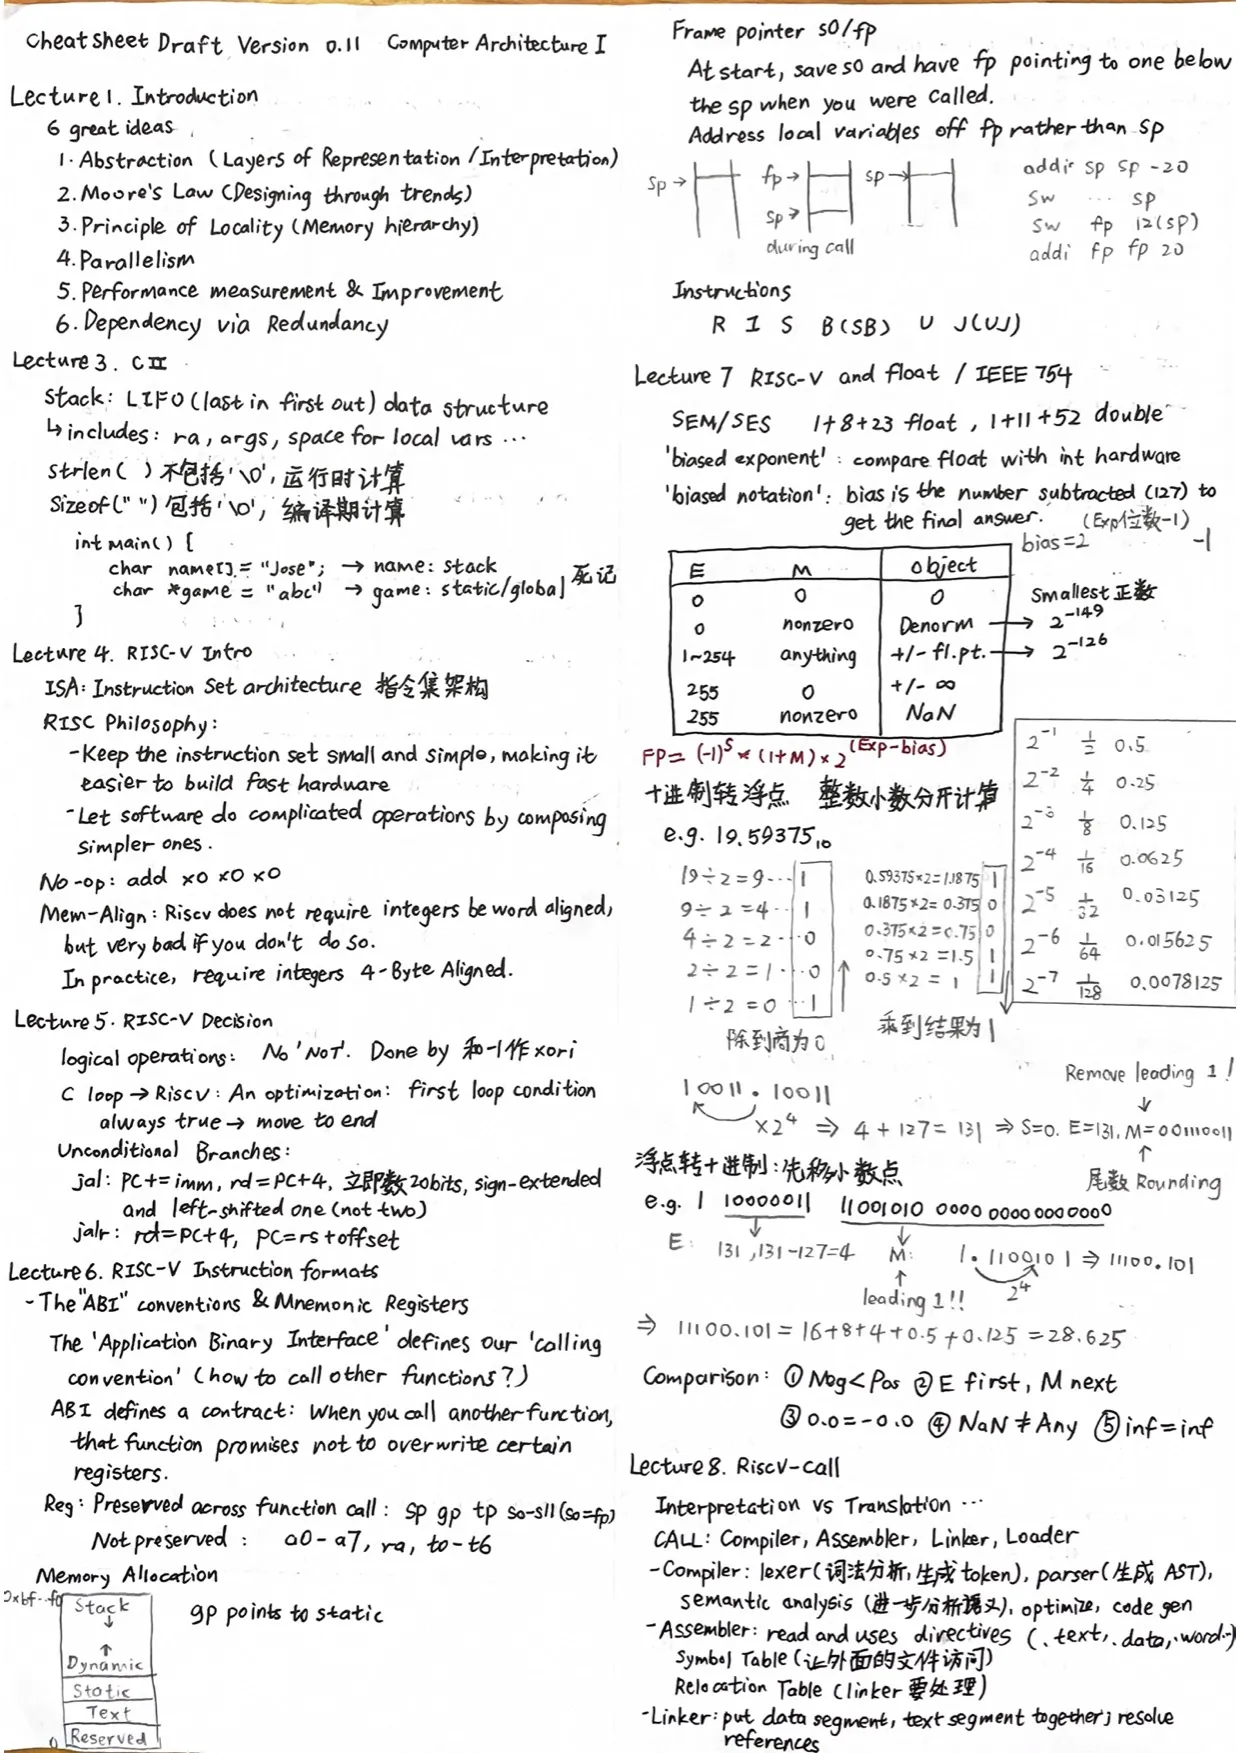 Cheat Sheet Draft Version 0.11 Computer Architecture I
Lecture 1. Introduction
6 great ideas
1. Abstraction (Layers of Representation / Interpretation)
2. Moore's Law (Designing through trends)
3. Principle of Locality (Memory hierarchy)
4. Parallelism
5. Performance measurement & Improvement
6. Dependency via Redundancy
Lecture 3. C II
Stack: LIFO (last in first out) data structure
↳ includes: ra, args, space for local vars ...
strlen( ) 不包括'\0', 运行时计算
Sizeof(" ") 包括'\0', 编译期计算
int main() {
char name[] = "Jose"; → name: stack
char *game = "abc" → game: static/global 死记
}
Lecture 4. RISC-V Intro
ISA: Instruction Set architecture 指令集架构
RISC Philosophy:
- Keep the instruction set small and simple, making it
easier to build fast hardware
- Let software do complicated operations by composing
simpler ones.
No-op: add x0 x0 x0
Mem-Align: Riscv does not require integers be word aligned,
but very bad if you don't do so.
In practice, require integers 4-Byte Aligned.
Lecture 5. RISC-V Decision
logical operations: No 'NOT'. Done by 和-1作xori
C loop → Riscv: An optimization: first loop condition
always true → move to end
Unconditional Branches:
jal: PC+=imm, rd=PC+4, 立即数20bits, sign-extended
and left-shifted one (not two)
jalr: rd=PC+4, PC=rs+offset
Lecture 6. RISC-V Instruction formats
- The "ABI" conventions & Mnemonic Registers
The 'Application Binary Interface' defines our 'calling
convention' (how to call other functions?)
ABI defines a contract: When you call another function,
that function promises not to overwrite certain
registers.
Reg: Preserved across function call: sp gp tp s0-s11 (s0=fp)
Not preserved: a0-a7, ra, t0-t6
Memory Allocation
0xbf..f0 Stack
↓
gp points to static
↑
Dynamic
Static
Text
0 Reserved
Frame pointer s0/fp
At start, save s0 and have fp pointing to one below
the sp when you were called.
Address local variables off fp rather than sp
sp → fp → sp →
sp →
during call
addi sp sp -20
sw ... sp
sw fp 12(sp)
addi fp fp 20
Instructions
R I S B(SB) U J(UJ)
Lecture 7 RISC-V and float / IEEE 754
SEM/SES 1+8+23 float, 1+11+52 double
'biased exponent': compare float with int hardware
'biased notation': bias is the number subtracted (127) to
get the final answer.
bias=2 (Exp位数-1) -1
E M object
0 0 0
0 nonzero Denorm → 2^-149
1~254 anything +/- fl.pt. → 2^-126
255 0 +/- ∞
255 nonzero NaN
Smallest 正数
FP = (-1)^S * (1+M) × 2^(Exp-bias)
十进制转浮点 整数小数分开计算
e.g. 19.59375₁₀
19÷2=9...1
9÷2=4..1
4÷2=2..0
2÷2=1..0
1÷2=0..1
除到商为0
0.59375×2=1.1875 1
0.1875×2=0.375 0
0.375×2=0.75 0
0.75×2=1.5 1
0.5×2=1 1
乘到结果为1
2^-1 1/2 0.5
2^-2 1/4 0.25
2^-3 1/8 0.125
2^-4 1/16 0.0625
2^-5 1/32 0.03125
2^-6 1/64 0.015625
2^-7 1/128 0.0078125
Remove leading 1!
↓
10011.10011
×2^4 ⇒ 4+127=131 ⇒ S=0. E=131. M=00110011
↑
尾数 Rounding
浮点转十进制: 先移小数点
e.g. 1 10000011 11001010 0000 00000000000
E: 131, 131-127=4 M: 1.1100101 ⇒ 11100.101
2^4
leading 1!!
⇒ 11100.101 = 16+8+4+0.5+0.125 = 28.625
Comparison: ① Neg<Pos ② E first, M next
③ 0.0=-0.0 ④ NaN ≠ Any ⑤ inf=inf
Lecture 8. RiscV-call
Interpretation vs Translation ...
CALL: Compiler, Assembler, Linker, Loader
- Compiler: lexer(词法分析,生成token), parser(生成 AST),
semantic analysis (进一步分析语义), optimize, code gen
- Assembler: read and uses directives (.text, .data, .word..)
Symbol Table (让外面的文件访问)
Relocation Table (linker 要处理)
- Linker: put data segment, text segment together; resolve
references